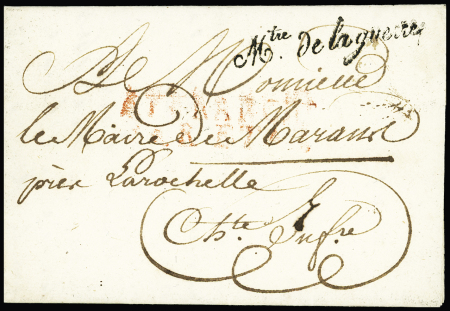 Mtre. de la guerre
A Monsieur
le Maire de Marans
près Larochelle
Chte Infre